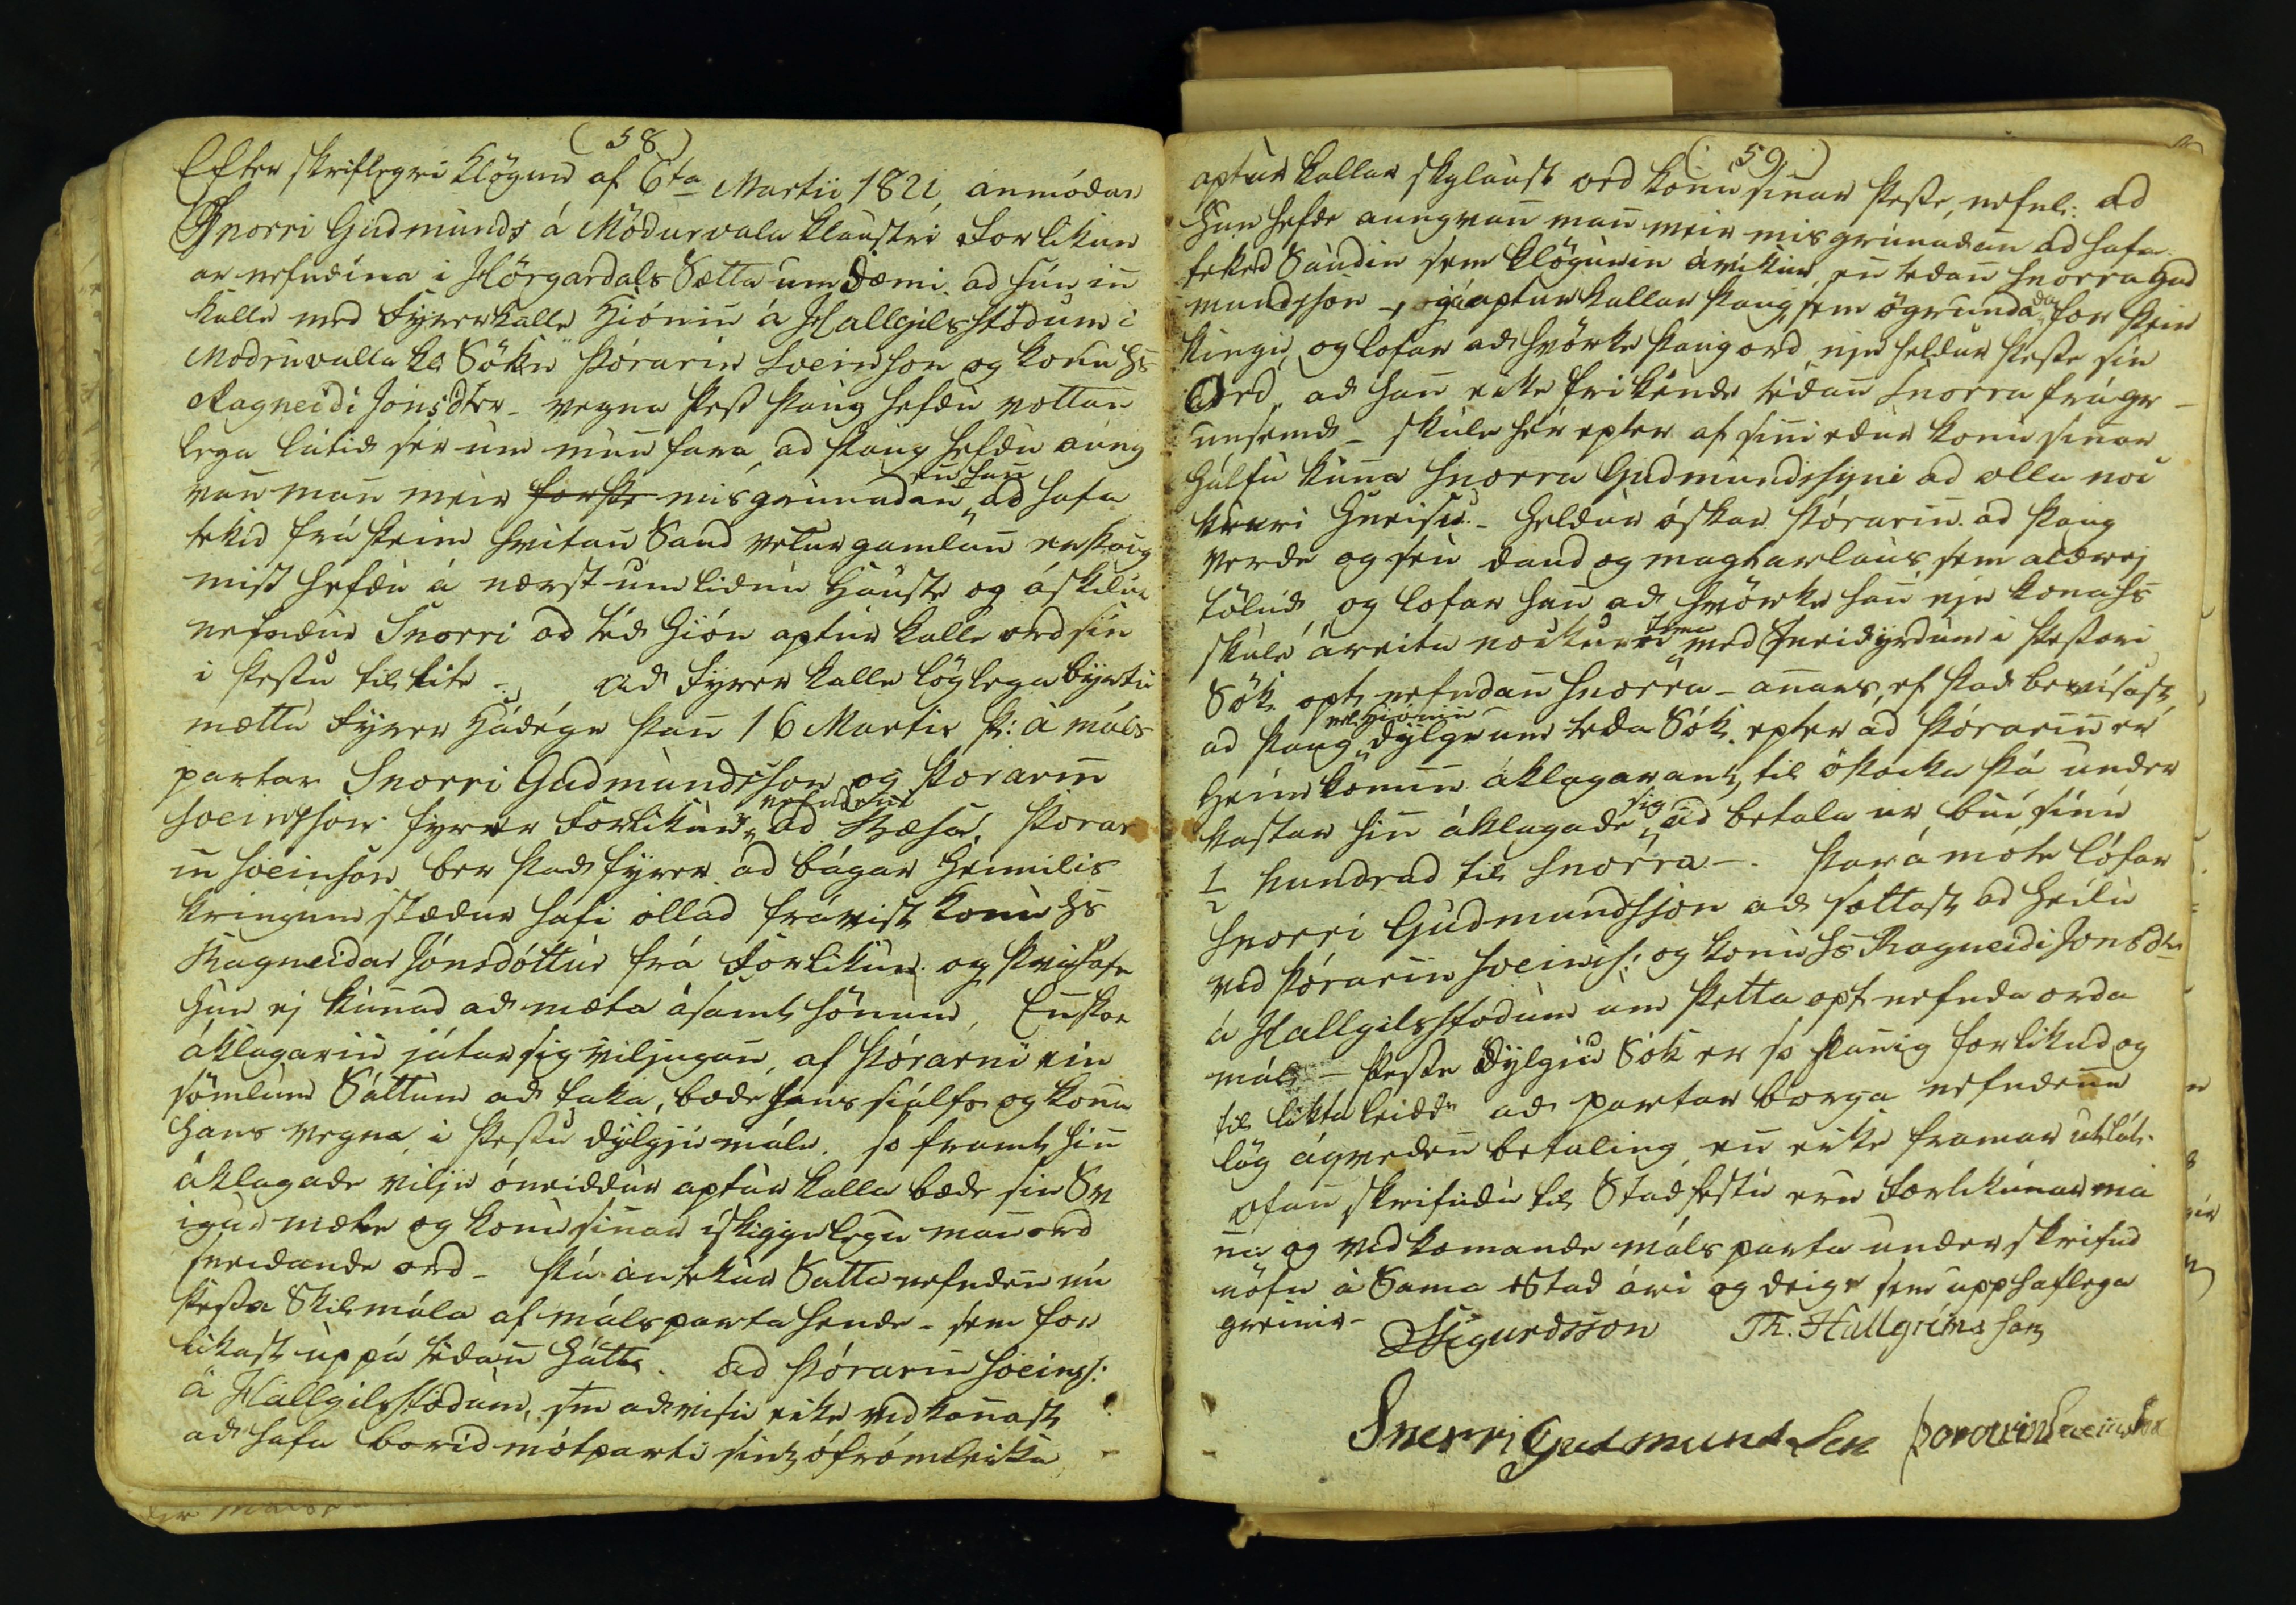 (58)
Efter skriflegri Klögun af 6ta Martii 1821, anmódar
Snorri Gudmunds á Mödurvala klaustri Forlikun
ar nefndina i Hörgardals Sættaumdæmi ad hún in
kalle med Fyrerkalle Hiónin á Hallgilsstödum i
Modruvalla kl Sókn Þórarin Sveinson og konu hs
Ragneidi Jónsdter - vegna þess þaug hefdu vottan
lega látid sér um mun fara, ad þaug hefdu aung
van man meir misgrunadan en han ad hafa
tekid frá þeim hvitan Saud veturgamlan er þaug
mist hefdu á nærst umlidnu Hauste og áskilur
nefndur Snorri ad téd Hión aptur kalle ord sin
i þessu tilliti - Ad Fyrer kalle löglega byrtu
mættu Fyrer Hádége þan 16 Martii þ: á máls
partar Snorri Gudmundsson og Þorarin
Sveinsson fyrer Forlikunar nefndini ad Bæsá. Þorar
in Sveinson ber þad fyrer ad bágar Heimilis
kringumstædur hafi ollad fravist konu hs
Ragneidar Jónsdóttur frá Forlikun og þvi hafe
hun ej kunad ad mæta ásamt hönum, En þar
áklagarin játar sig viljugan, af Þórarni ein
sömlum Sáttum ad taka, bæde hans sialfs og konu
hans vegna, i þessu dylgju mále. so framt hin
áklagade vilje óneiddur aptur kalla bæde sin Sv
igur mæle og konu sinar iskiggelegu man ord
sneidande ord - þá antekur Satta nefnden nú
þessa Skilmála af málsparta hende - sem for
likast uppá tédan hátt. Ad Þórarin Sveinss:
á Hallgilsstödum, sem advisu ecke vid kanast
ad hafa borid mótparti sin ófrómleika
(59)
aptur kallar skylaust ord konu sinar þesse, nefnl: ad
Hun hefde aungvan man meir misgrunadan ad hafa
teked Saudin sem klögunin ávikur, en tedan Snorra Gud
mundsson -, já aptur kallar þaug sem ógrundada for þein
kingu, og lofar ad hvörke þaug ord nje heldur þesse sin
Ord, ad han ecke frikende tédan Snorra frá gr
unsemd - skule hér epter af sini edur konu sinar
hálfu kuna Snorra Gudmundssyni ad olla noc
kurri Hneisu. - Heldur óskar Þórarin. ad þaug
verde og seu daud og magtarlaus sem aldrej
töluds, og lofar han ad hvörke han nje kona hs
skule áreita nockurn tima med Sneidyrdum i þessari
Sök opt nefndan Snorra - anars, ef þad bevisast,
ad þaug nl. Hiónin dylge um teda Sök. epter ad Þórarin er
Heimkomin áklagarans, til óþocka þá under
kastar hin áklagade sig ad betala ur bui sinu
1 hundrad til Snorra -. Þar á móte lófar
Snorri Gudmundsson ad sættast ad Heilu
vid Þórarin Sveinss: og konu hs Ragneidi Jonsdtr
á Hallgilsstodum um þetta opt nefnda orda
mál - Þesse Dylgiu Sök er so þanig forlikud og
til likta leidd ad partar borga nefndene
lög ágveden betaling, en ecke framar utlát.
ofan skrifudu til Stadfestu eru Forlikunar ma
na og vid komande máls parta under skrifud
nöfn á Sama Stad ári og deige sem upphaflega
greinir -
SSigurdsson Th. Hallgrimsson
Snorri Gudmundsson Þorarin Sveinsson